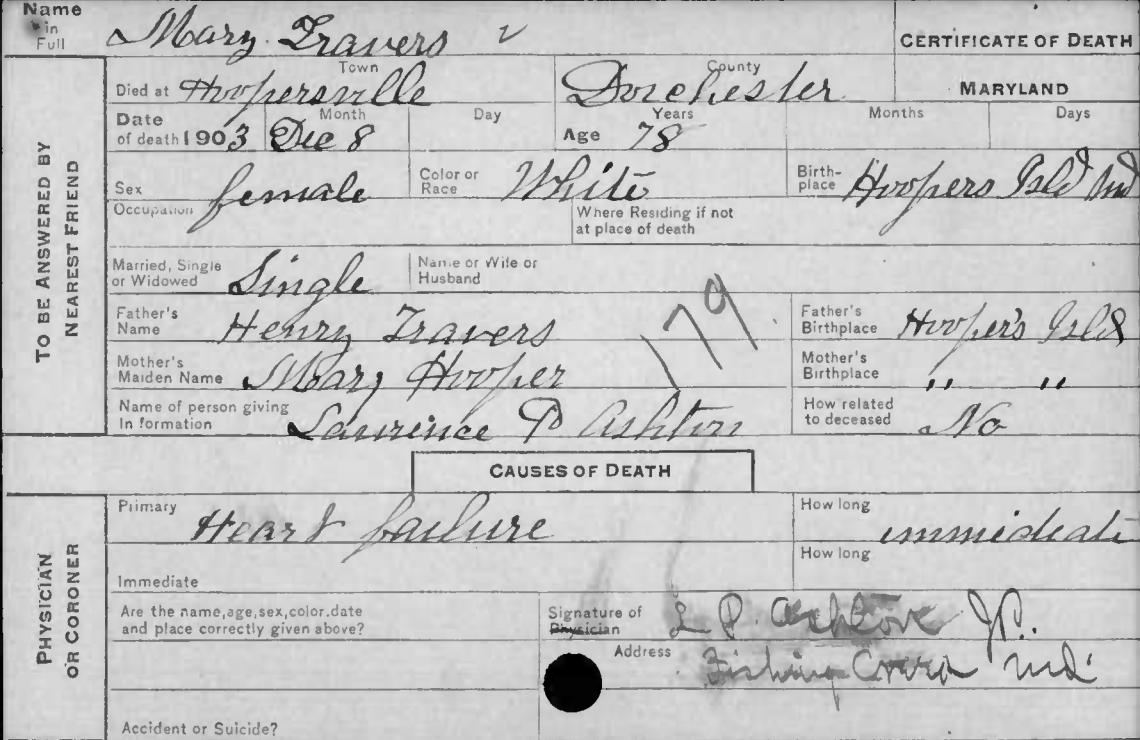 Name in Full Mary Travers
CERTIFICATE OF DEATH
Town County
Died at Hoopersville Dorchester MARYLAND
Date of death 1903 Month Dec 8 Day Age Years 78 Months Days
Sex female Color or Race White Birth-place Hoopers Isld Md
Occupation Where Residing if not at place of death
Married, Single or Widowed Single Name or Wife or Husband
Father's Name Henry Travers Father's Birthplace Hooper's Isld
179
Mother's Maiden Name Mary Hooper Mother's Birthplace " "
Name of person giving In formation Laurince P Ashton How related to deceased No
TO BE ANSWERED BY NEAREST FRIEND
CAUSES OF DEATH
Primary Heart failure How long immideate
Immediate How long
Are the name,age,sex,color.date and place correctly given above? Signature of Physician L P. Ashton JP.
Address Fishing Md
Accident or Suicide?
PHYSICIAN OR CORONER